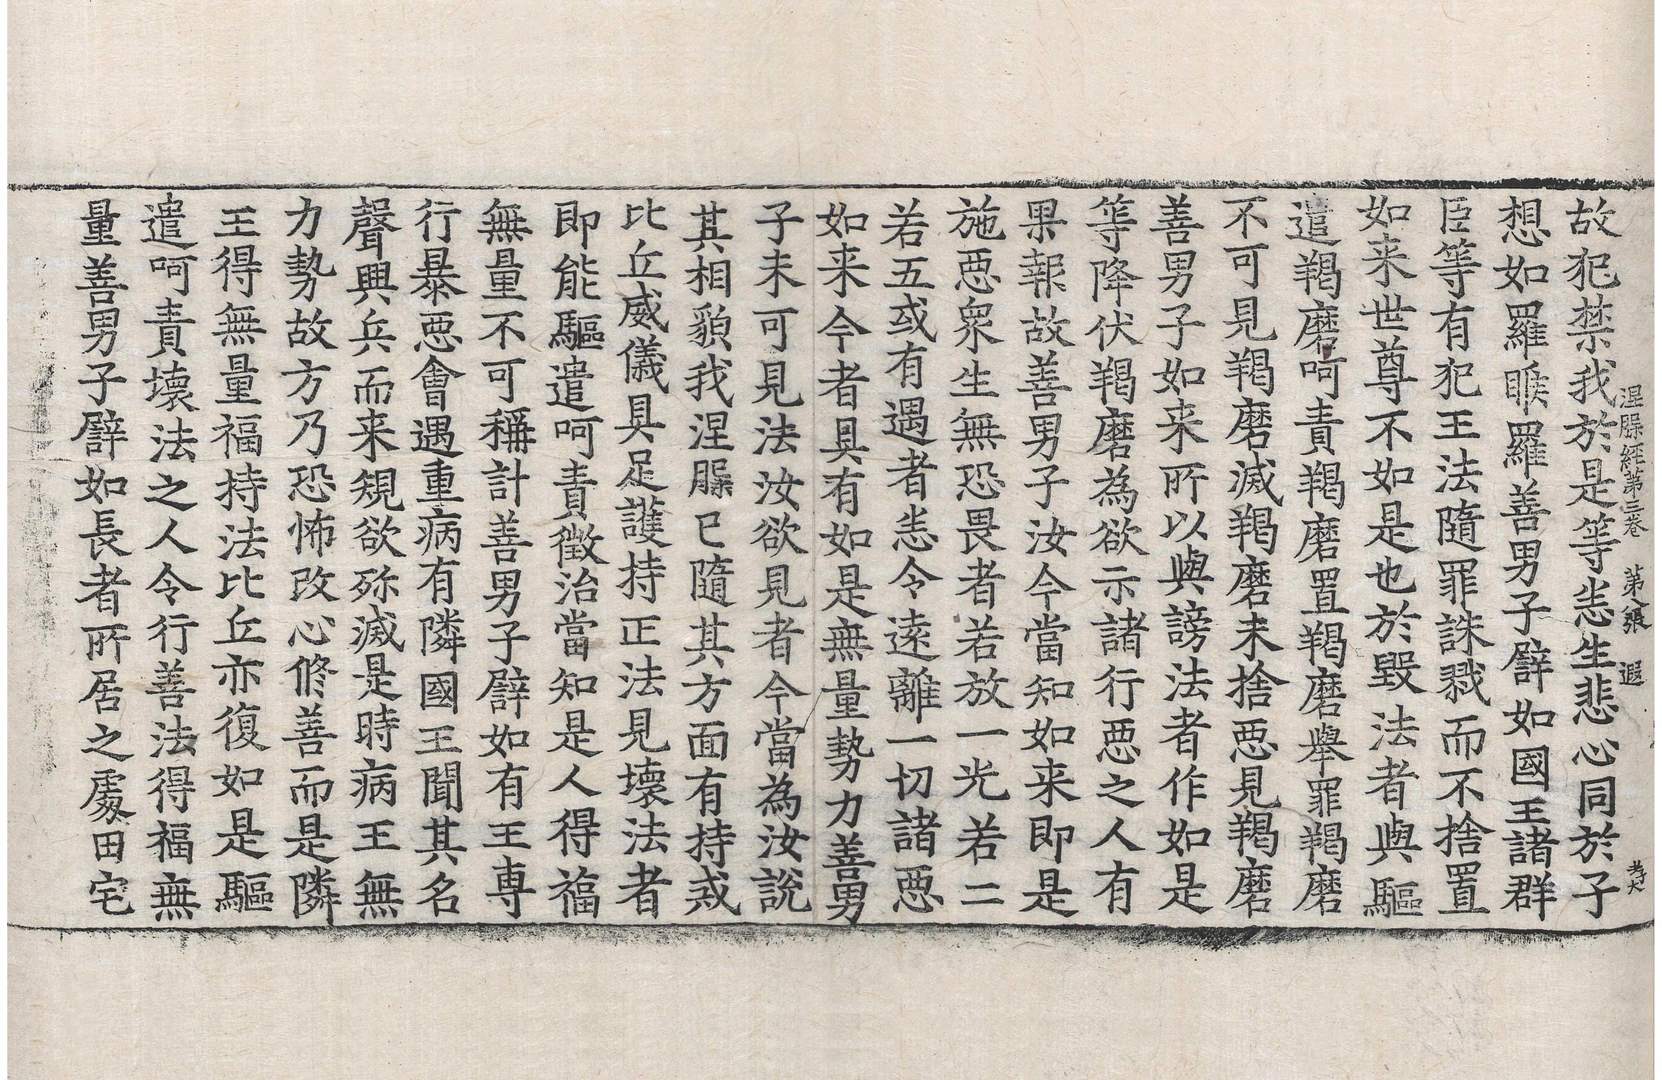 涅槃經第三卷 第八張 遐 孝大
故犯禁我於是等恙生悲心同於子
想如羅睺羅善男子譬如國王諸群
臣等有犯王法隨罪誅戮而不捨置
如来世尊不如是也於毀法者與驅
遣羯磨呵責羯磨置羯磨舉罪羯磨
不可見羯磨滅羯磨未捨惡見羯磨
善男子如来所以與謗法者作如是
等降伏羯磨為欲示諸行惡之人有
果報故善男子汝今當知如来即是
施惡衆生無恐畏者若放一光若二
若五或有遇者恙令遠離一切諸惡
如来今者具有如是無量勢力善男
子未可見法汝欲見者今當為汝說
其相貌我涅槃已隨其方面有持戒
比丘威儀具足護持正法見壞法者
即能驅遣呵責徵治當知是人得福
無量不可稱計善男子譬如有王專
行暴惡會遇重病有隣國王聞其名
聲興兵而来規欲殄滅是時病王無
力勢故方乃恐怖改心修善而是隣
王得無量福持法比丘亦復如是驅
遣呵責壞法之人令行善法得福無
量善男子譬如長者所居之處田宅